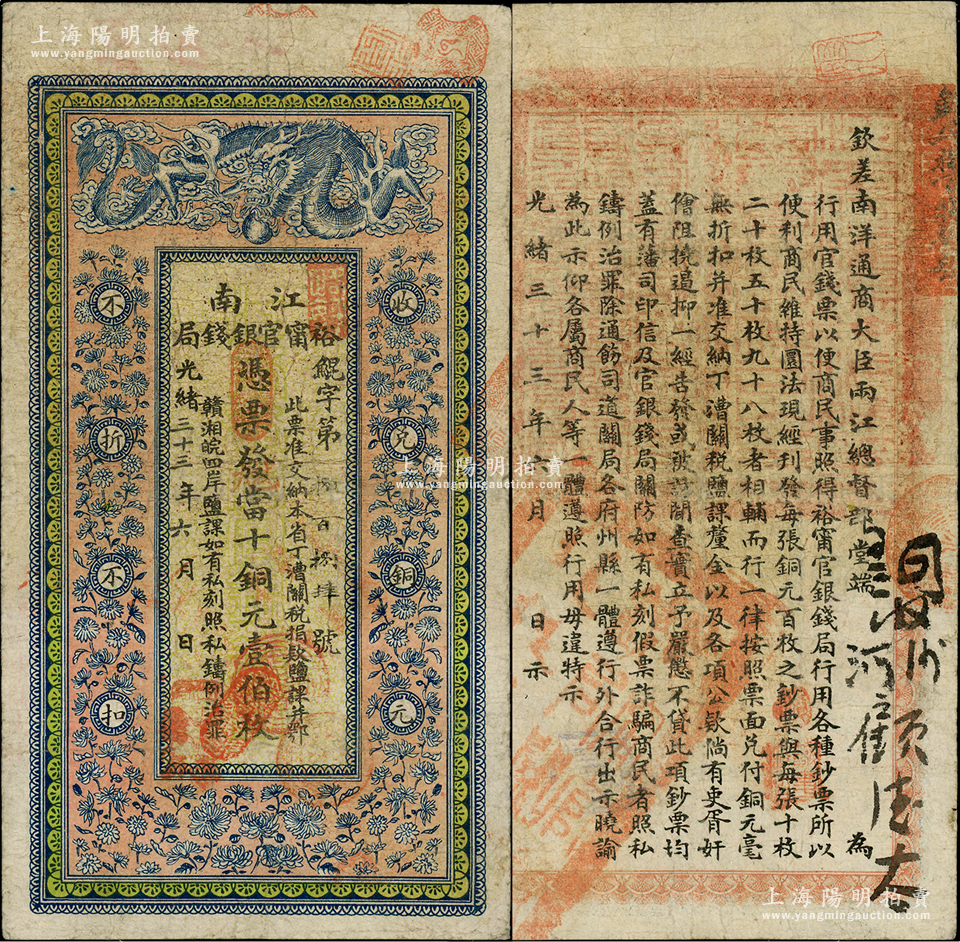 上海陽明拍賣
www.yangmingauction.com
江南
裕甯官銀錢局
鯤字第 百捌拾肆號
此票准交納本省丁漕關稅捐款鹽課并鄂
憑票發當十銅元壹佰枚
贛湘皖四岸鹽課如有私刻照私鑄例治罪
光緒三十三年六月 日
收兌銅元
不折不扣
上海陽明拍賣
www.yangmingauction.com
欽差南洋通商大臣兩江總督部堂端 為
行用官錢票以便商民事照得裕甯官銀錢局行用各種鈔票所以
便利商民維持圜法現經刊發每張銅元百枚之鈔票與每張十枚
二十枚五十枚九十八枚者相輔而行一律按照票面兌付銅元毫
無折扣并准交納丁漕關稅鹽課釐金以及各項公款倘有吏胥奸
儈阻撓逼抑一經告發或被訪聞查實立予嚴懲不貸此項鈔票均
蓋有藩司印信及官銀錢局關防如有私刻假票詐騙商民者照私
鑄例治罪除通飭司道關局各府州縣一體遵行外合行出示曉諭
為此示仰各屬商民人等一體遵照行用毋違特示
光緒三十三年六月 日示
上海陽明拍賣
www.yangmingauction.com